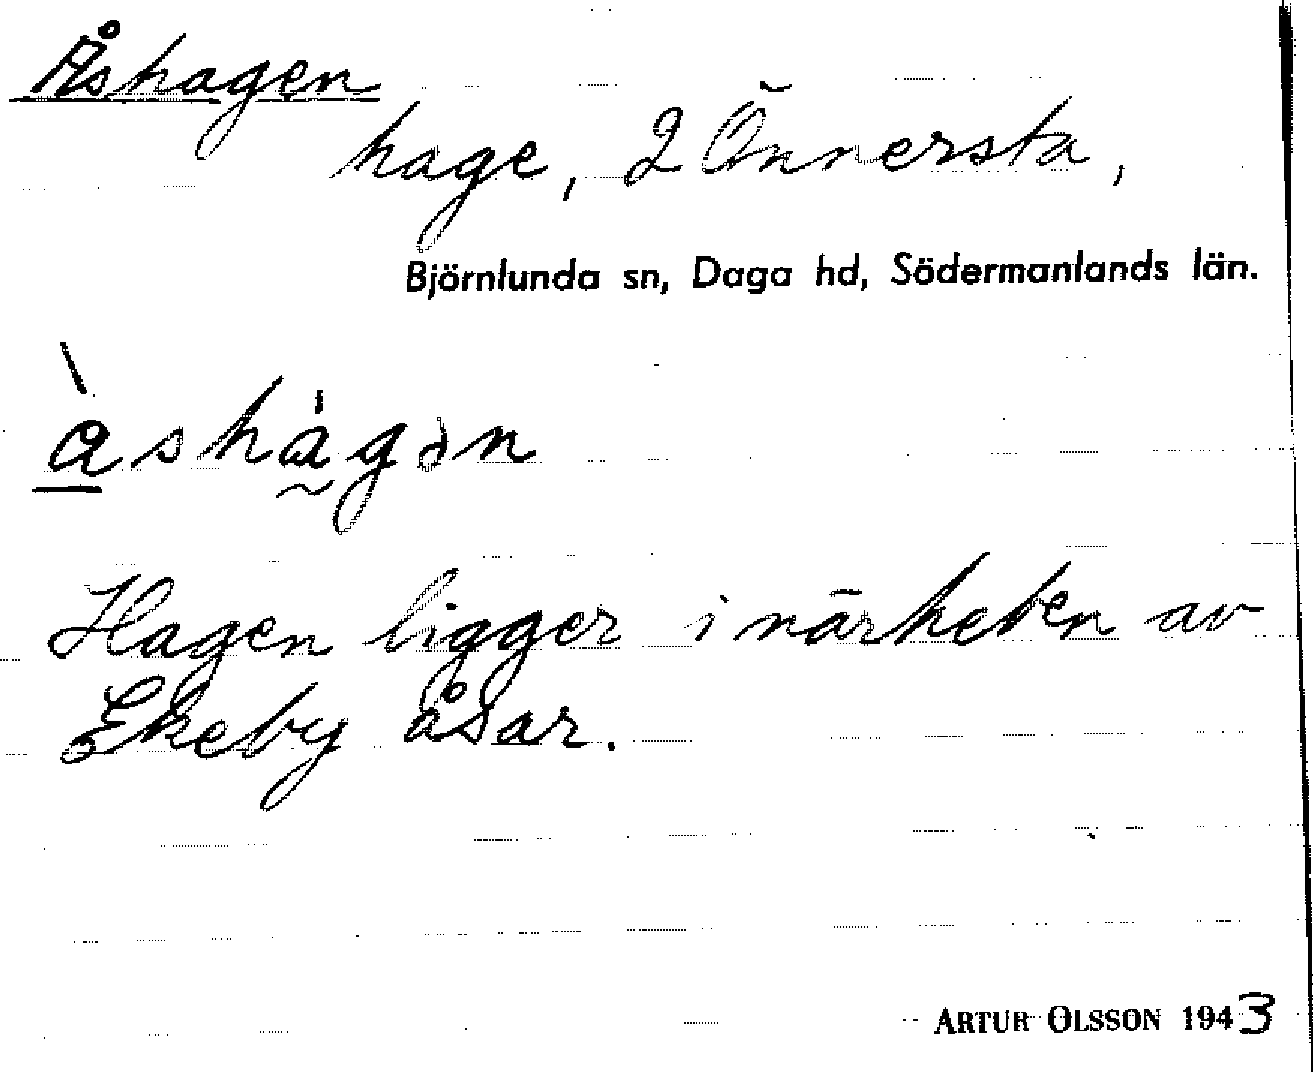 Åshagen
hage, 2 Önnersta,
Björnlunda sn, Daga hd, Södermanlands län.
à̲shȧ̰gən
Hagen ligger i närheten av
Ekeby åsar.
ARTUR OLSSON 1943